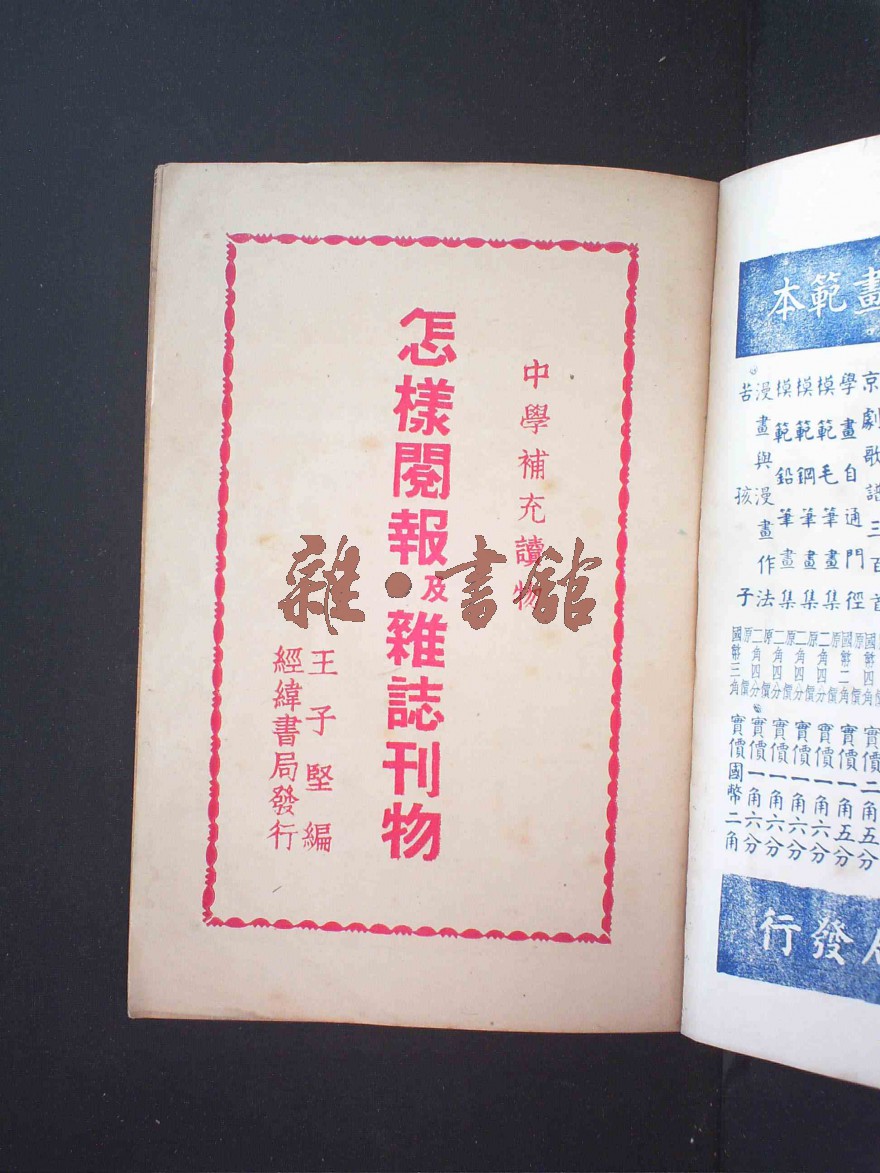 中學補充讀物
怎樣閱報及雜誌刊物
王子堅編
經緯書局發行
雜·書館
畫範本
京劇歌譜三百首
學畫自通門徑 原價國幣二角 實價一角五分
模範毛筆畫集 原價二角四分 實價一角六分
模範鋼筆畫集 原價二角四分 實價一角六分
模範鉛筆畫集 原價二角四分 實價一角六分
漫畫與漫畫作法 原價二角四分 實價一角六分
苦孩子 原價國幣三角 實價國幣二角
發行